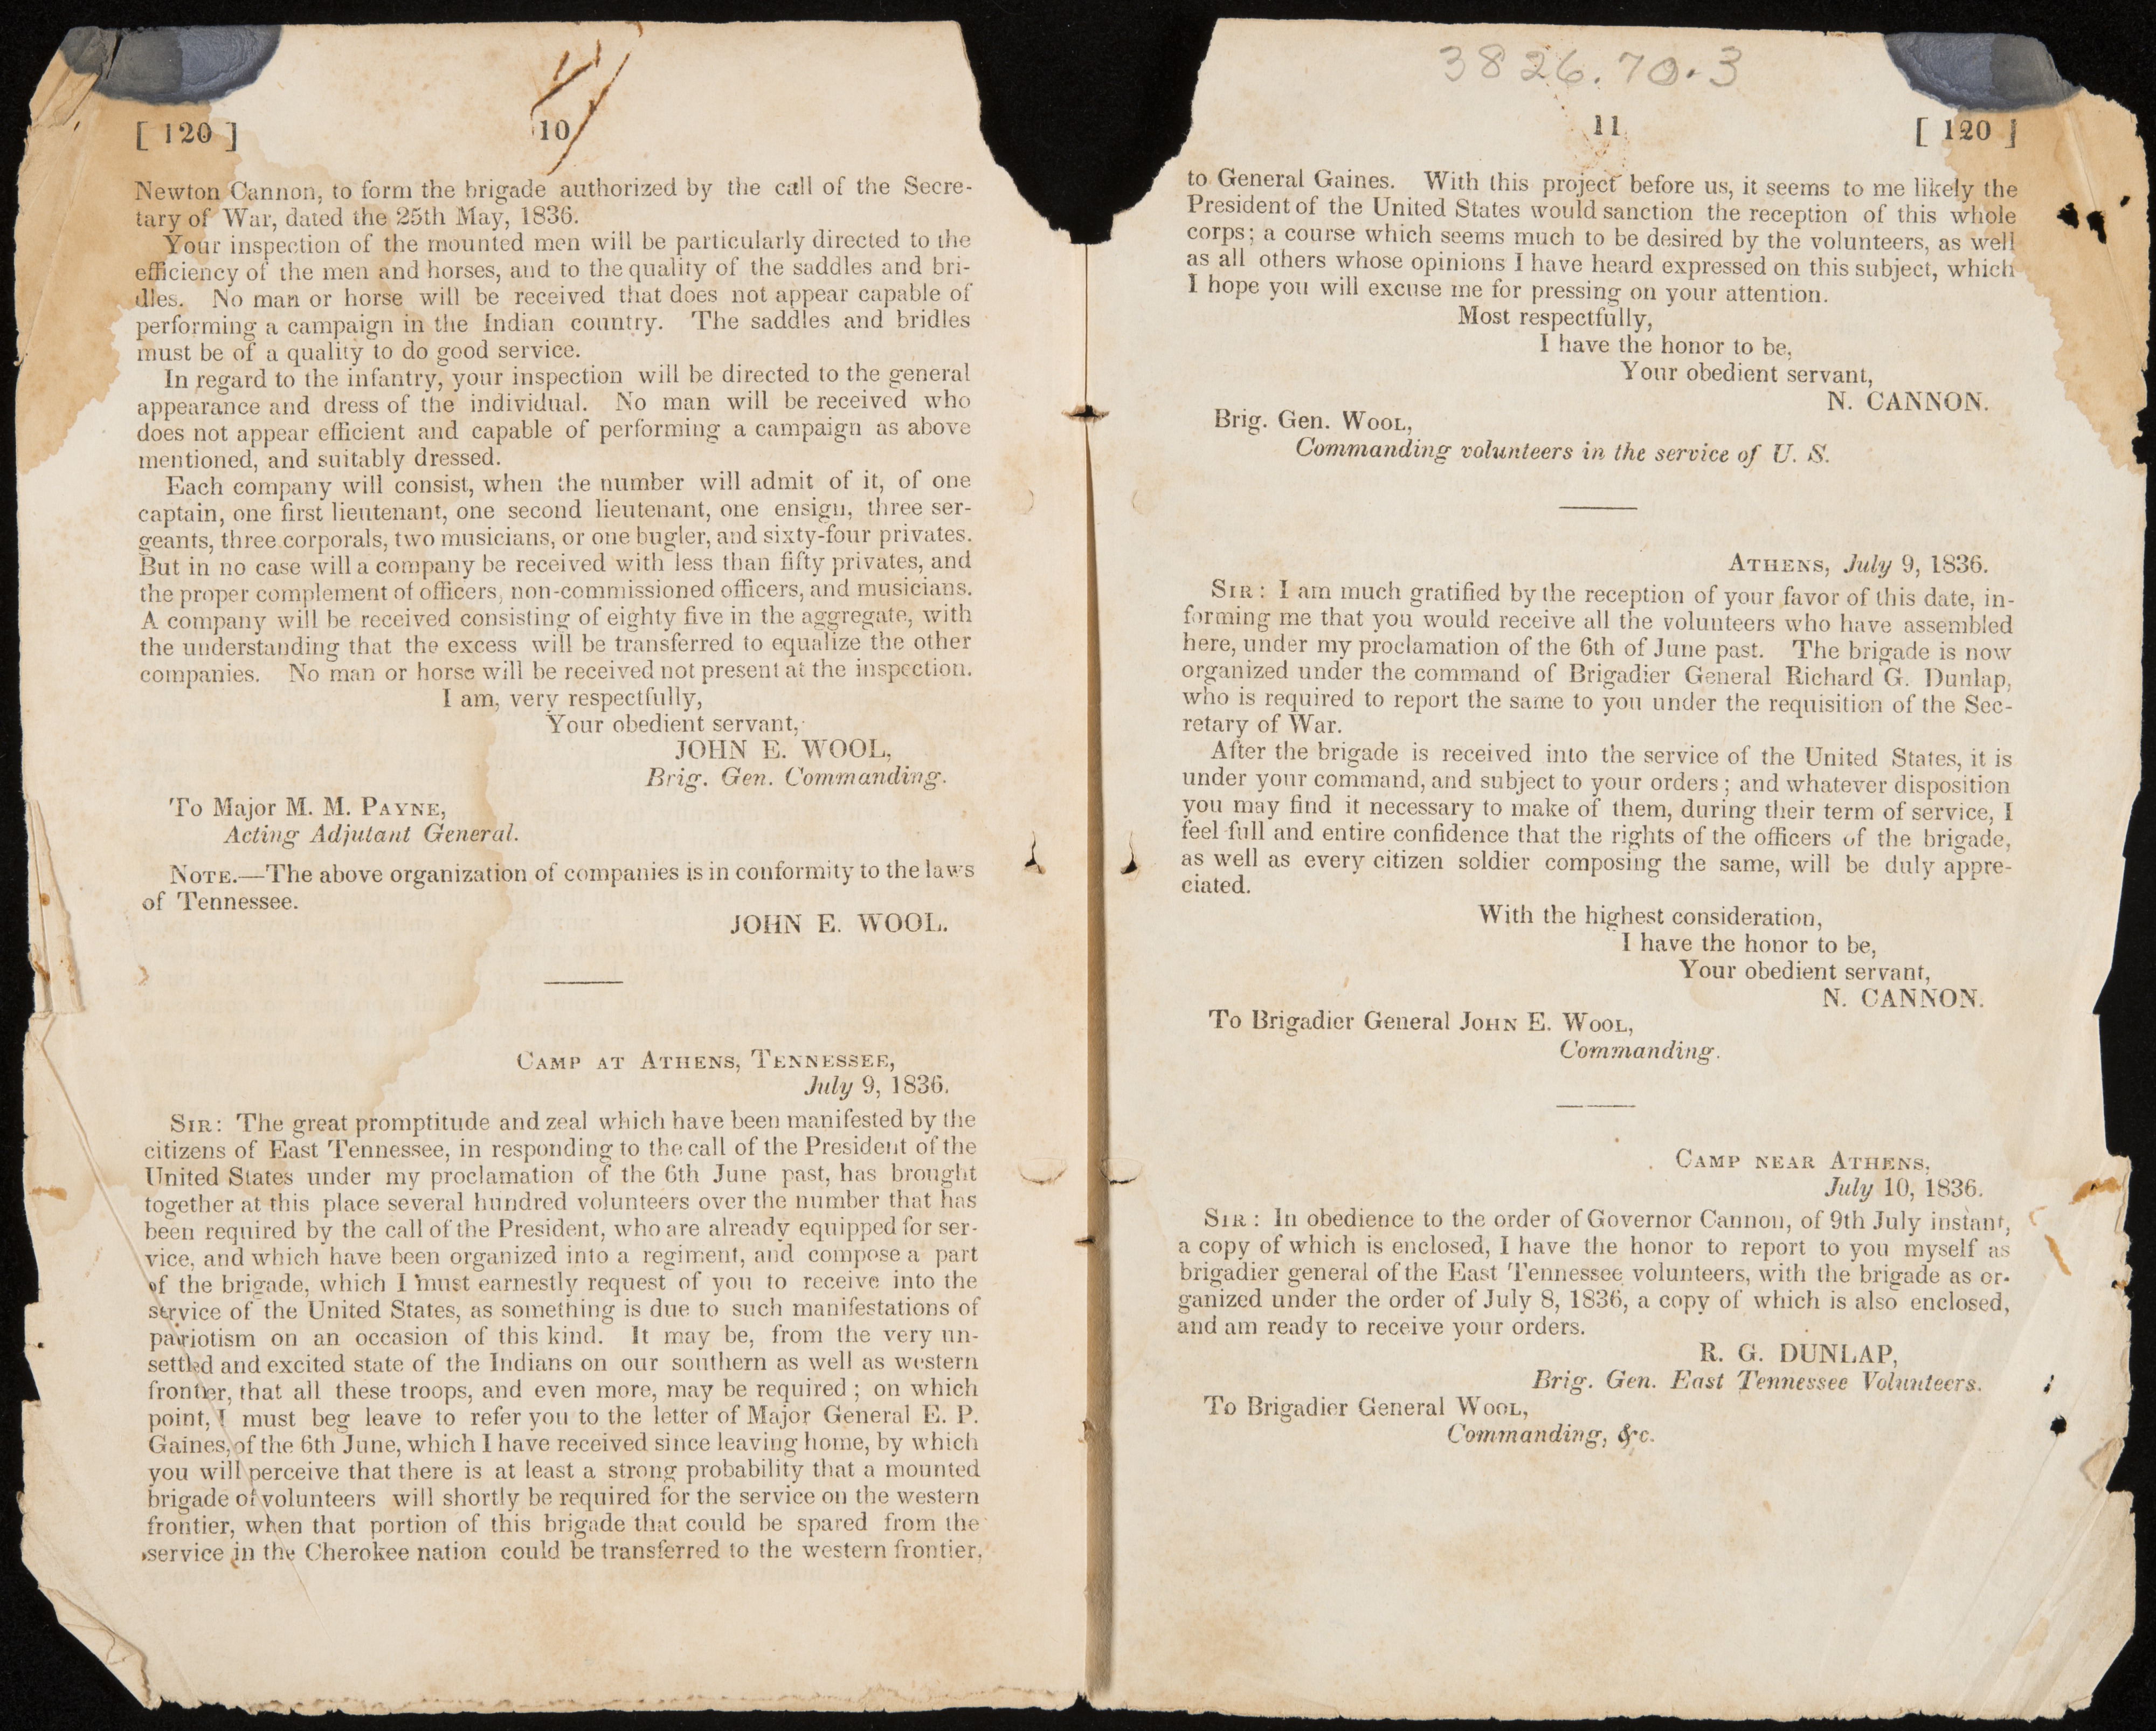 [ 120 ]
10
Newton Cannon, to form the brigade authorized by the call of the Secre-
tary of War, dated the 25th May, 1836.
Your inspection of the mounted men will be particularly directed to the
efficiency of the men and horses, and to the quality of the saddles and bri-
dles. No man or horse will be received that does not appear capable of
performing a campaign in the Indian country. The saddles and bridles
must be of a quality to do good service.
In regard to the infantry, your inspection will be directed to the general
appearance and dress of the individual. No man will be received who
does not appear efficient and capable of performing a campaign as above
mentioned, and suitably dressed.
Each company will consist, when the number will admit of it, of one
captain, one first lieutenant, one second lieutenant, one ensign, three ser-
geants, three corporals, two musicians, or one bugler, and sixty-four privates.
But in no case will a company be received with less than fifty privates, and
the proper complement of officers, non-commissioned officers, and musicians.
A company will be received consisting of eighty five in the aggregate, with
the understanding that the excess will be transferred to equalize the other
companies. No man or horse will be received not present at the inspection.
I am, very respectfully,
Your obedient servant,
JOHN E. WOOL,
Brig. Gen. Commanding.
To Major M. M. PAYNE,
Acting Adjutant General.
NOTE.—The above organization of companies is in conformity to the laws
of Tennessee.
JOHN E. WOOL.
CAMP AT ATHENS, TENNESSEE,
July 9, 1836.
SIR: The great promptitude and zeal which have been manifested by the
citizens of East Tennessee, in responding to the call of the President of the
United States under my proclamation of the 6th June past, has brought
together at this place several hundred volunteers over the number that has
been required by the call of the President, who are already equipped for ser-
vice, and which have been organized into a regiment, and compose a part
of the brigade, which I must earnestly request of you to receive into the
service of the United States, as something is due to such manifestations of
patriotism on an occasion of this kind. It may be, from the very un-
settled and excited state of the Indians on our southern as well as western
frontier, that all these troops, and even more, may be required; on which
point, I must beg leave to refer you to the letter of Major General E. P.
Gaines, of the 6th June, which I have received since leaving home, by which
you will perceive that there is at least a strong probability that a mounted
brigade of volunteers will shortly be required for the service on the western
frontier, when that portion of this brigade that could be spared from the
service in the Cherokee nation could be transferred to the western frontier,
3826.70.3
11
[ 120 ]
to General Gaines. With this project before us, it seems to me likely the
President of the United States would sanction the reception of this whole
corps; a course which seems much to be desired by the volunteers, as well
as all others whose opinions I have heard expressed on this subject, which
I hope you will excuse me for pressing on your attention.
Most respectfully,
I have the honor to be,
Your obedient servant,
N. CANNON.
Brig. Gen. WOOL,
Commanding volunteers in the service of U. S.
ATHENS, July 9, 1836.
SIR: I am much gratified by the reception of your favor of this date, in-
forming me that you would receive all the volunteers who have assembled
here, under my proclamation of the 6th of June past. The brigade is now
organized under the command of Brigadier General Richard G. Dunlap,
who is required to report the same to you under the requisition of the Sec-
retary of War.
After the brigade is received into the service of the United States, it is
under your command, and subject to your orders; and whatever disposition
you may find it necessary to make of them, during their term of service, I
feel full and entire confidence that the rights of the officers of the brigade,
as well as every citizen soldier composing the same, will be duly appre-
ciated.
With the highest consideration,
I have the honor to be,
Your obedient servant,
N. CANNON.
To Brigadier General JOHN E. WOOL,
Commanding.
CAMP NEAR ATHENS,
July 10, 1836.
SIR: In obedience to the order of Governor Cannon, of 9th July instant,
a copy of which is enclosed, I have the honor to report to you myself as
brigadier general of the East Tennessee volunteers, with the brigade as or-
ganized under the order of July 8, 1836, a copy of which is also enclosed,
and am ready to receive your orders.
R. G. DUNLAP,
Brig. Gen. East Tennessee Volunteers.
To Brigadier General WOOL,
Commanding, &c.